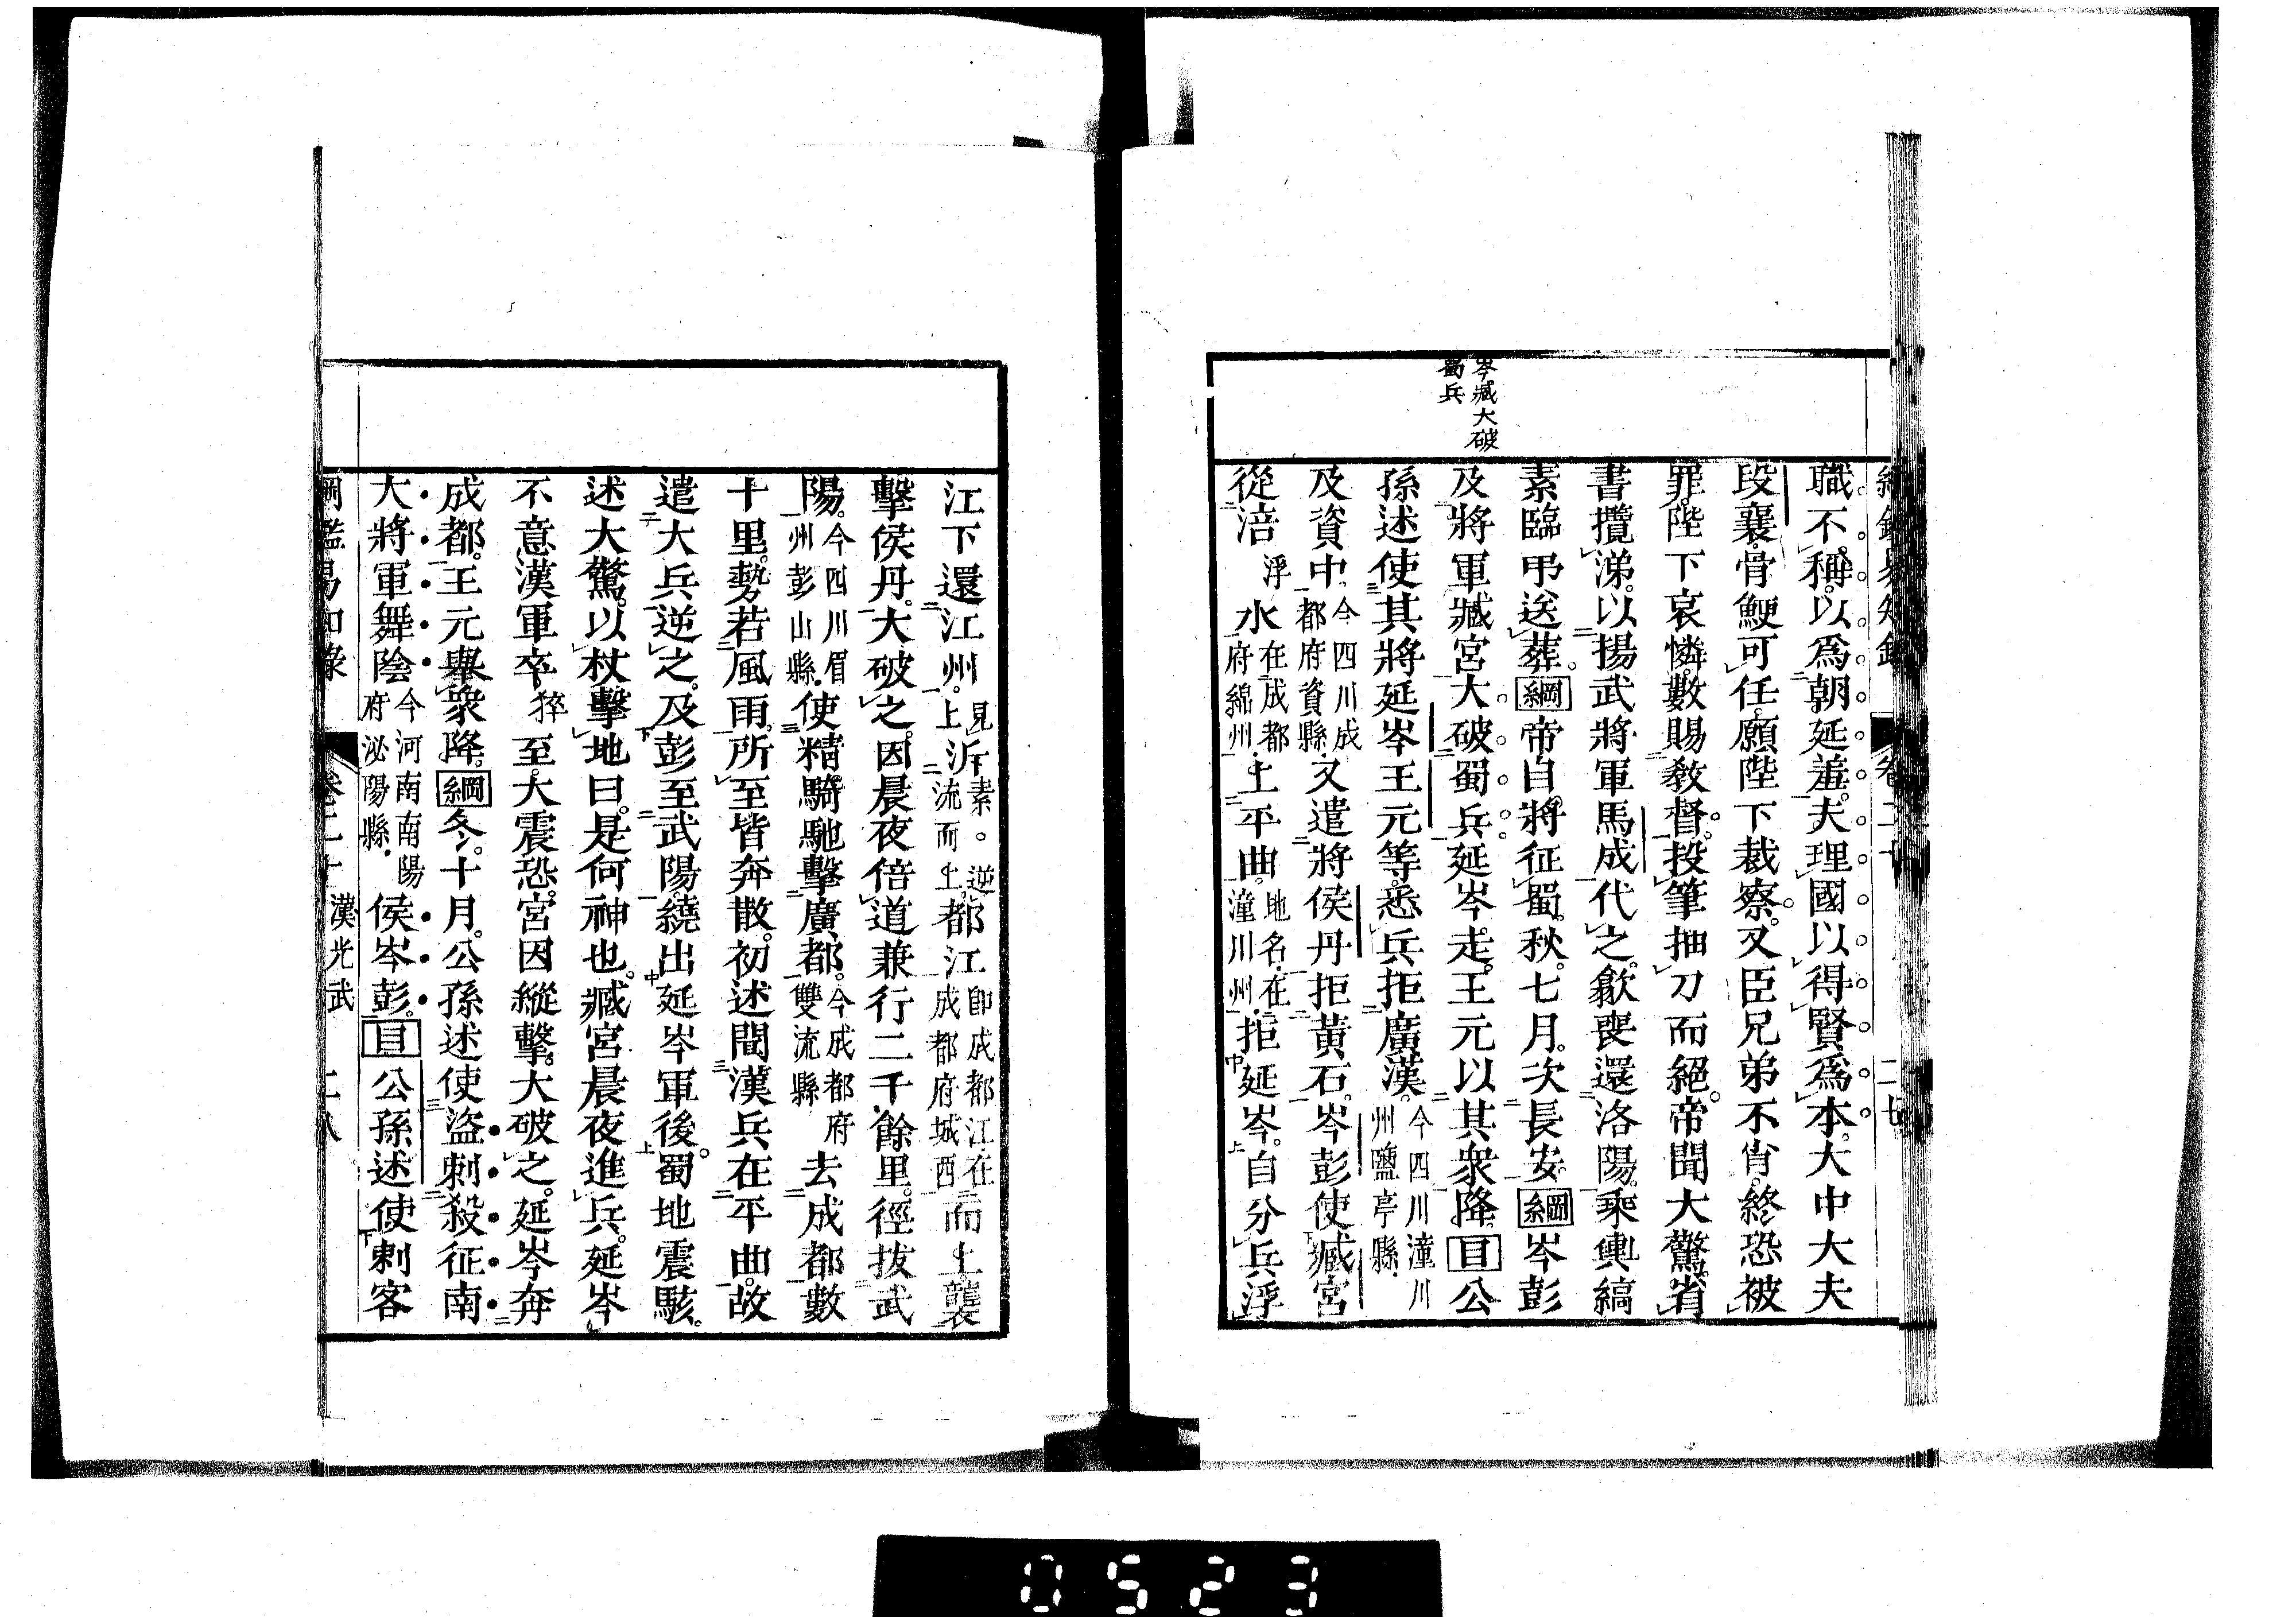 綱鑑易知錄 卷二十 二七
岑臧大破
蜀兵
職不稱。以爲朝廷羞。夫理國以得賢爲本。大中大夫
段襄。骨鯁可任。願陛下裁察。又臣兄弟不肖。終恐被
罪。陛下哀憐。數賜教督。投筆抽刀而絕。帝聞大驚。省
書攬涕。以揚武將軍馬成代之。歙喪還洛陽。乘輿縞
素臨弔送葬。綱帝自將征蜀。秋。七月。次長安。綱岑彭
及將軍臧宮大破蜀兵。延岑走。王元以其衆降。目公
孫述使其將延岑王元等。悉兵拒廣漢。今四川潼川州鹽亭縣。
及資中。今四川成都府資縣。又遣將侯丹拒黃石。岑彭使臧宮
從涪浮水在成都府綿州。上平曲。地名。在潼川州。拒延岑。自分兵浮
江下還江州。見上泝素。逆流而上。都江卽成都江。在成都府城西而上。襲
擊侯丹。大破之。因晨夜倍道兼行二千餘里。徑拔武
陽。今四川眉州彭山縣。使精騎馳擊廣都。今成都府雙流縣去成都數
十里。勢若風雨。所至皆奔散。初述聞漢兵在平曲。故
遣大兵逆之。及彭至武陽。繞出延岑軍後。蜀地震駭。
述大驚。以杖擊地曰。是何神也。臧宮晨夜進兵。延岑
不意漢軍卒猝至。大震恐。宮因縱擊。大破之。延岑奔
成都。王元舉衆降。綱冬。十月。公孫述使盜刺殺征南
大將軍舞陰今河南南陽府泌陽縣。侯岑彭。目公孫述使刺客
綱鑑易知錄 卷二十 漢光武 二八
0523